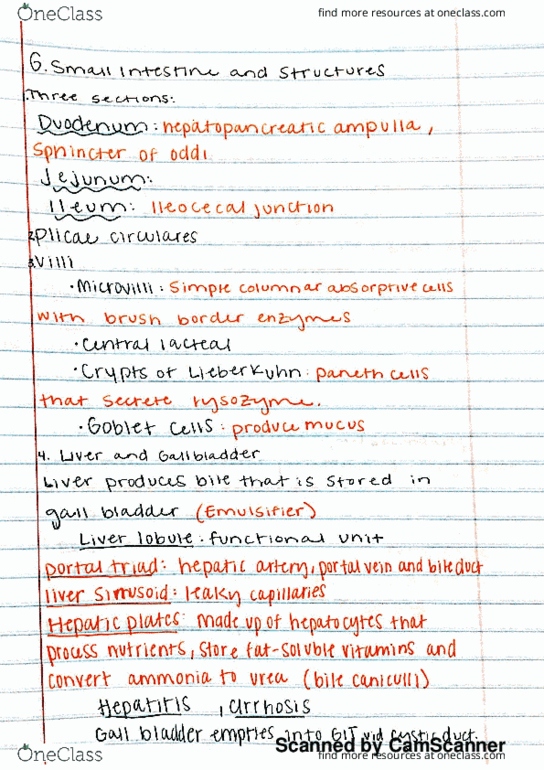 OneClass find more resources at oneclass.com
6. Small Intestine and Structures
1. Three sections:
Duodenum: hepatopancreatic ampulla,
Sphincter of oddi
Jejunum:
Ileum: Ileocecal junction
2. Plicae circulares
3. Villi
• Microvilli: Simple columnar absorptive cells
with brush border enzymes
• Central lacteal
• Crypts of Lieberkuhn: paneth cells
that secrete lysozyme.
• Goblet cells: produce mucus
4. Liver and Gallbladder
Liver produces bile that is stored in
gall bladder (Emulsifier)
Liver lobule: functional unit
portal triad: hepatic artery, portal vein and bile duct
liver sinusoid: leaky capillaries
Hepatic plates: made up of hepatocytes that
process nutrients, store fat-soluble vitamins and
convert ammonia to urea (bile caniculli)
Hepatitis, cirrhosis
Gall bladder empties into GIT via cystic duct.
Scanned by CamScanner
OneClass find more resources at oneclass.com